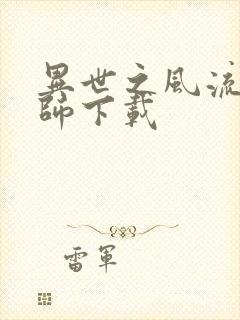 異世之風流
師下載
雷軍